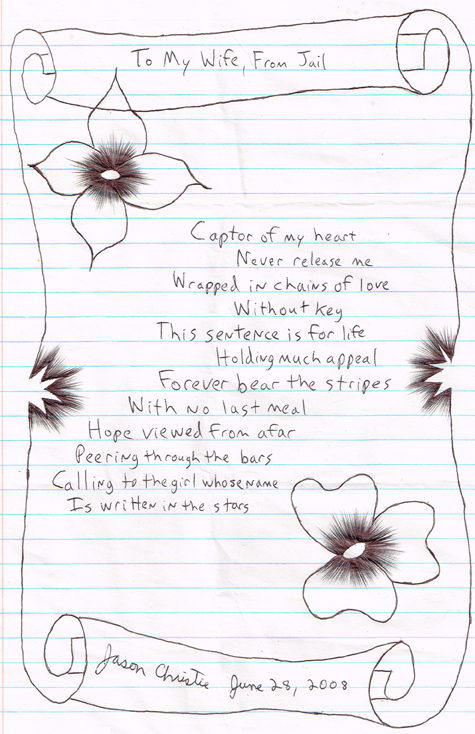 To My Wife, From Jail
Captor of my heart
Never release me
Wrapped in chains of love
Without key
This sentence is for life
Holding much appeal
Forever bear the stripes
With no last meal
Hope viewed from afar
Peering through the bars
Calling to the girl whose name
Is written in the stars
Jason Christie June 28, 2008